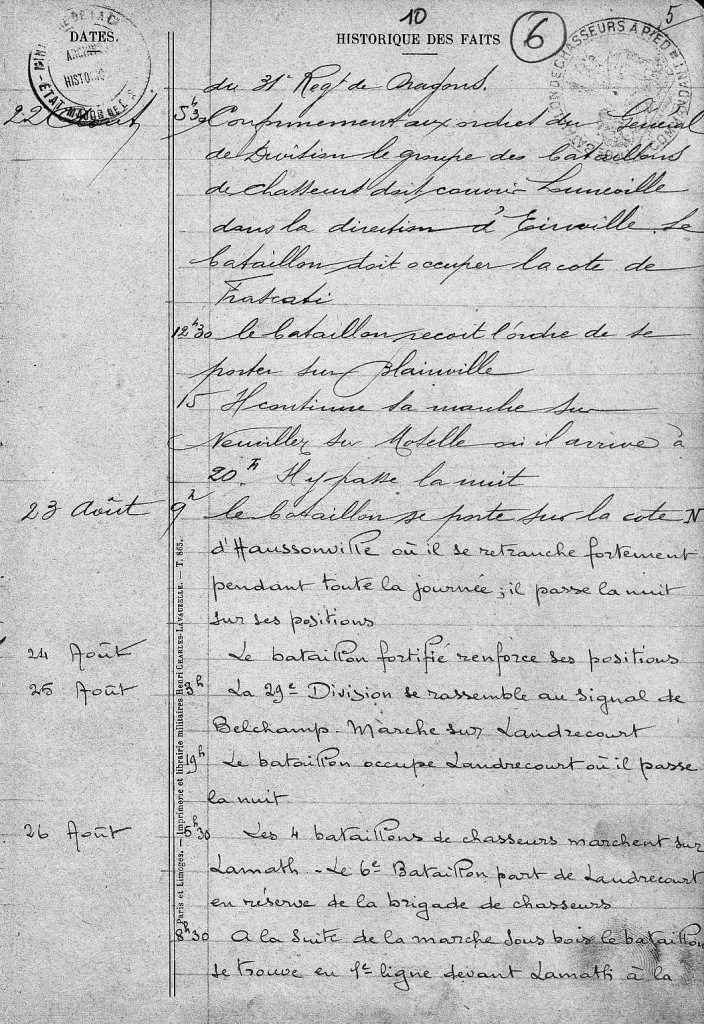 10
6
5
DATES.
HISTORIQUE DES FAITS
du 31e Regt de Dragons.
22 Août
5h30 Conformement aux ordres du General
de Division le groupe des bataillons
de chasseurs doit couvrir Luneville
dans la direction d'Einville. Le
bataillon doit occuper la cote de
Frascati
12h30 le bataillon recoit l'ordre de se
porter sur Blainville
15 Il continue sa marche sur
Neuviller sur Moselle ou il arrive à
20h. Il y passe la nuit
23 Août 9h le bataillon se porte sur la cote N
d'Haussonville où il se retranche fortement
pendant toute la journée ; il passe la nuit
sur ses positions
24 Août Le bataillon fortifié renforce ses positions
25 Août 3h La 29e Division se rassemble au signal de
Belchamp. Marche sur Landrecourt
19h Le bataillon occupe Landrecourt où il passe
la nuit
26 Août 5h30 Les 4 bataillons de chasseurs marchent sur
Lamath - Le 6e Bataillon part de Landrecourt
en réserve de la brigade de chasseurs
8h30 A la suite de la marche sous bois le bataillon
se trouve en 1e ligne devant Lamath à la
Paris et Limoges. — Imprimerie et librairie militaires Henri CHARLES-LAVAUZELLE. — T. 865.